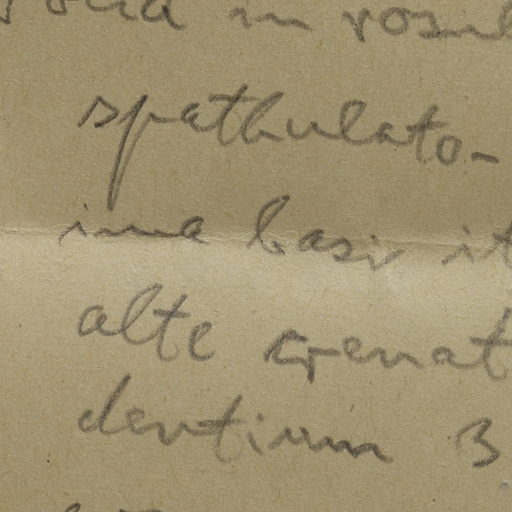 in rosul
spathulato-
ima basi it
alte crenat
dentium 3